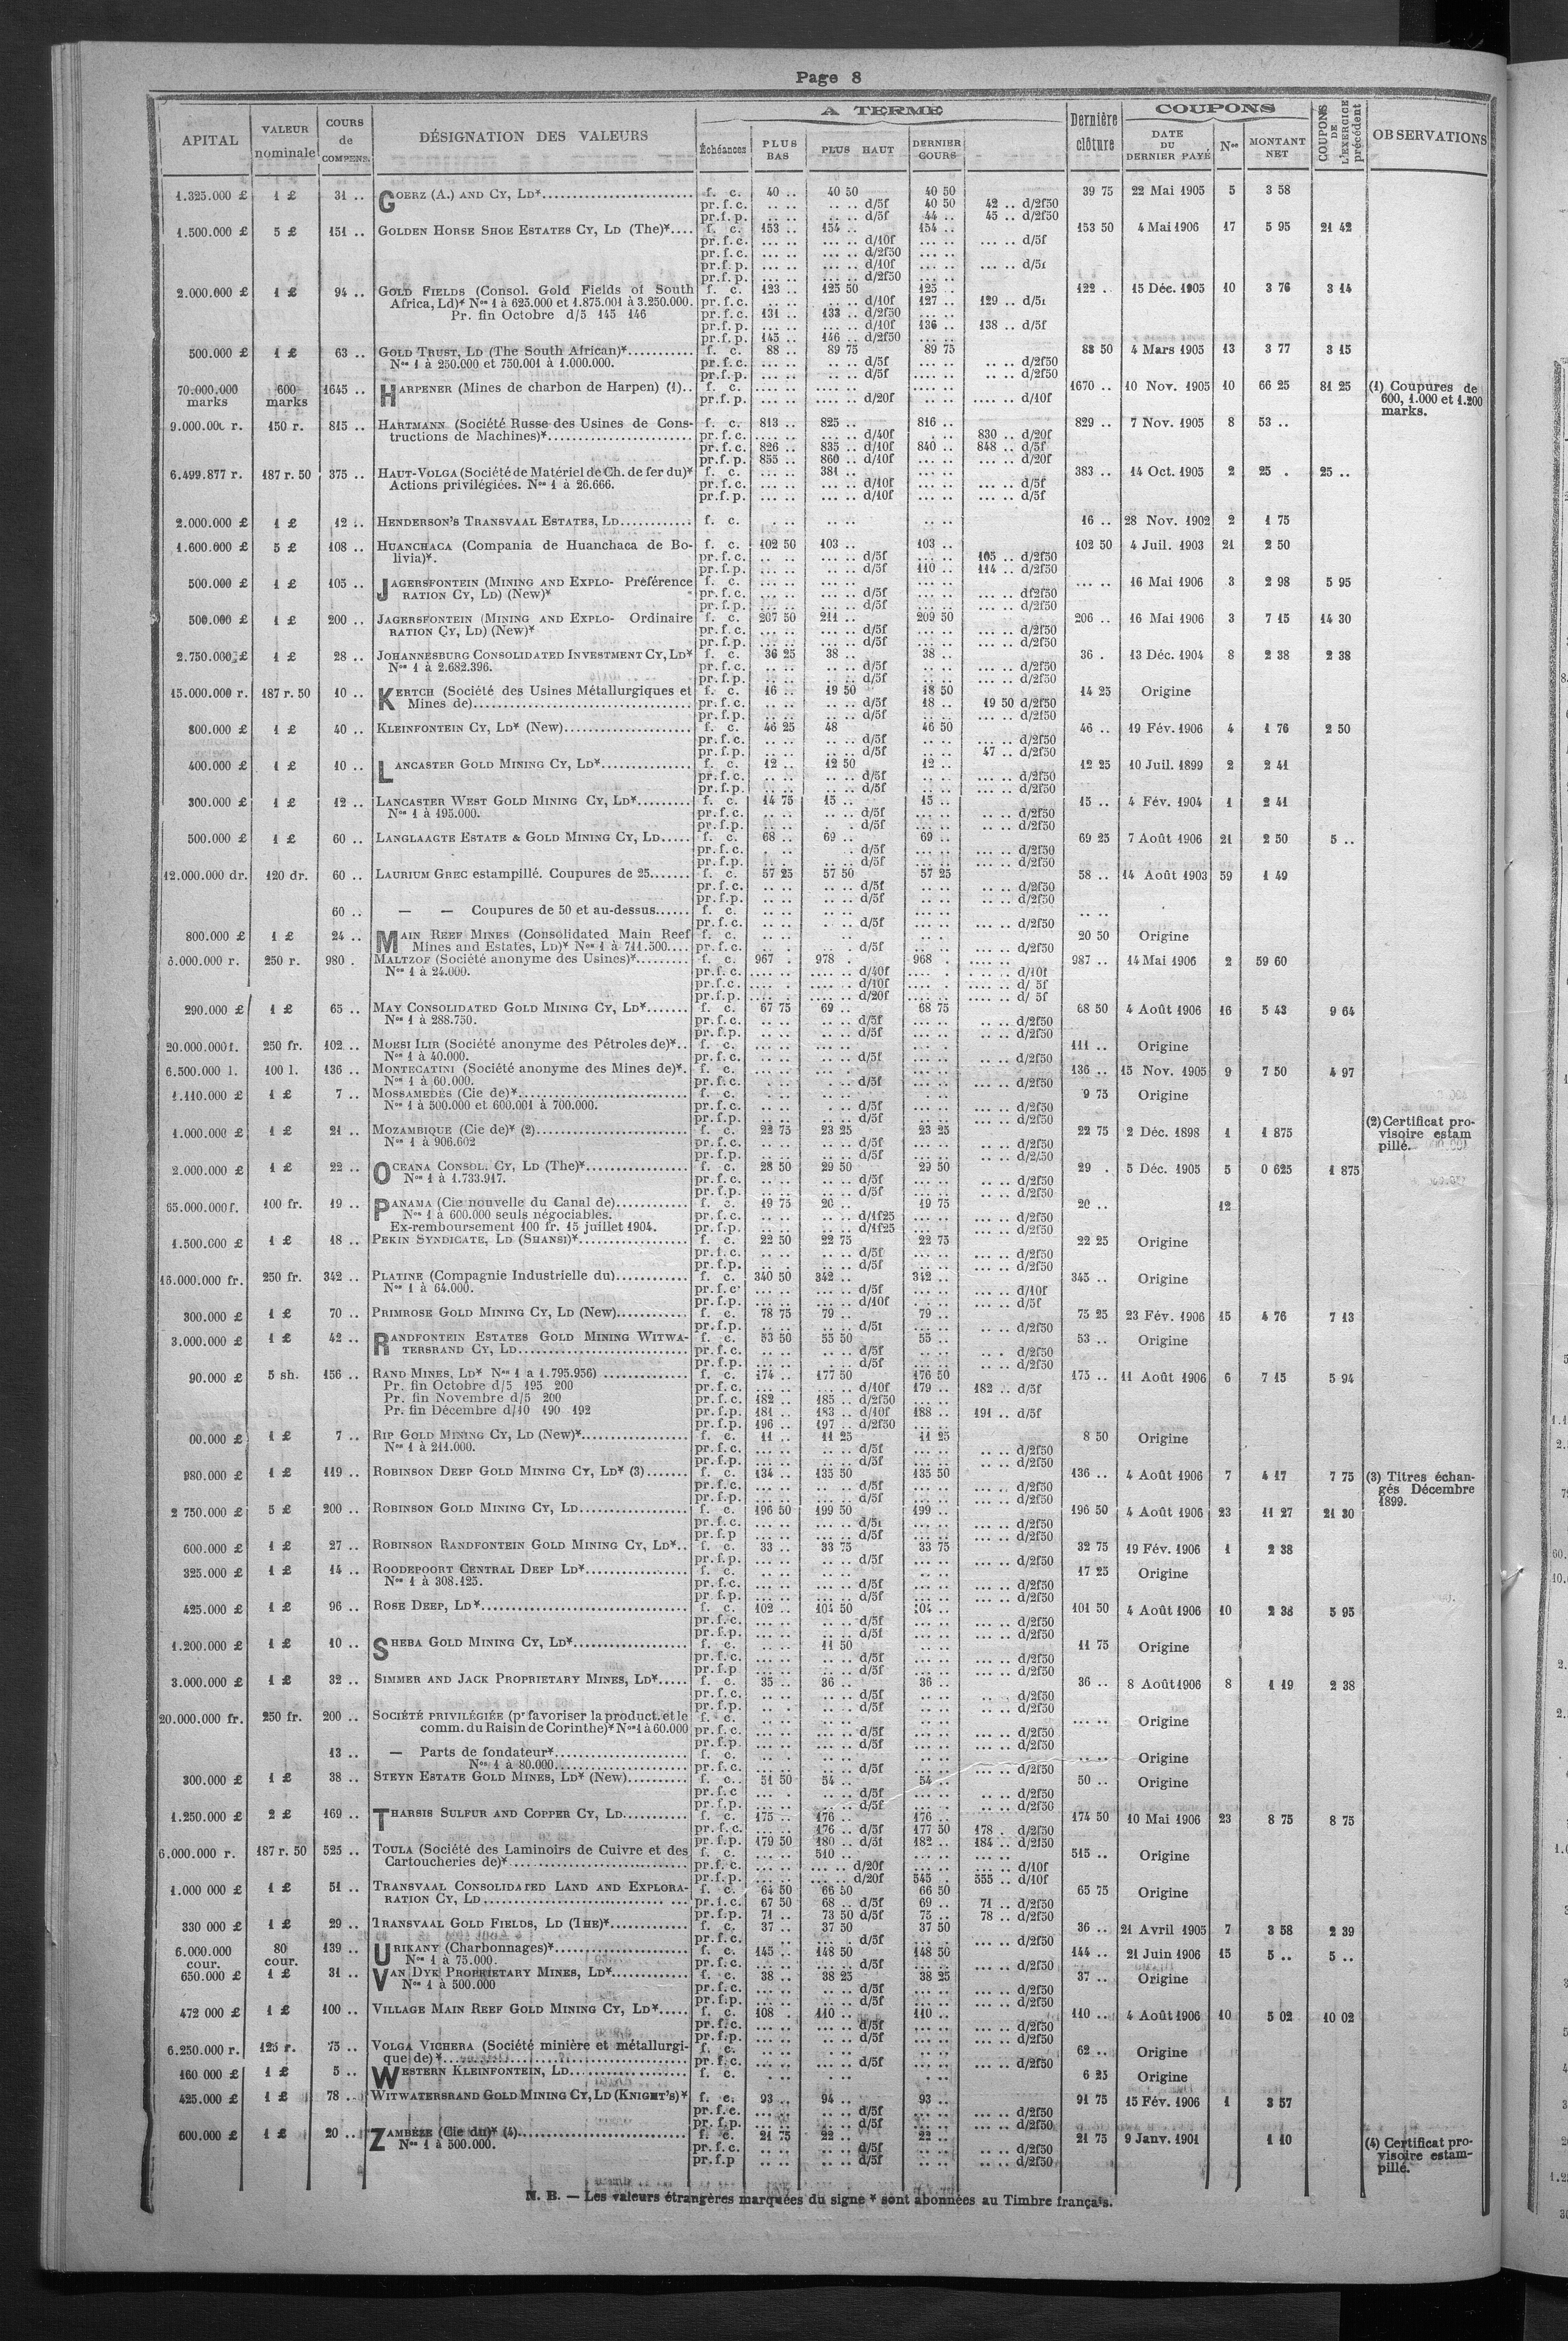 Page 8
APITAL | VALEUR nominale | COURS de COMPENS. | DÉSIGNATION DES VALEURS | A TERME | Dernière clôture | COUPONS | COUPONS DE L'EXERCICE précédent | OBSERVATIONS
Échéances | PLUS BAS | PLUS HAUT | DERNIER COURS | DATE DU DERNIER PAYÉ | Nos | MONTANT NET
1.325.000 £ 1 £ 31 .. GOERZ (A.) AND CY, LD* f. c. 40 .. 40 50 40 50 39 75 22 Mai 1905 5 3 58
pr. f. c. .. .. .. .. d/5f 40 50 42 .. d/2f50
pr. f. p. .. .. .. .. d/5f 44 .. 45 .. d/2f50
1.500.000 £ 5 £ 151 .. GOLDEN HORSE SHOE ESTATES CY, LD (The)* f. c. 153 .. 154 .. 154 .. 153 50 4 Mai 1906 17 5 95 21 42
pr. f. c. ... .. ... .. d/10f ... .. ... .. d/5f
pr. f. c. ... .. ... .. d/2f50 ... ..
pr. f. p. ... .. ... .. d/10f ... .. ... .. d/5f
pr. f. p. ... .. ... .. d/2f50 ... ..
2.000.000 £ 1 £ 94 .. GOLD FIELDS (Consol. Gold Fields of South f. c. 123 .. 125 50 125 .. 122 . 15 Déc. 1905 10 3 76 3 14
Africa, Ld)* Nos 1 à 625.000 et 1.875.001 à 3.250.000. pr. f. c. ... .. ... .. d/10f 127 .. 129 .. d/5f
Pr. fin Octobre d/5 145 146 pr. f. c. 131 .. 133 .. d/2f50 ... ..
pr. f. p. ... .. ... .. d/10f 136 .. 138 .. d/5f
pr. f. p. 145 .. 146 .. d/2f50 ... ..
500.000 £ 1 £ 63 .. GOLD TRUST, LD (The South African)* f. c. 88 .. 89 75 89 75 88 50 4 Mars 1905 13 3 77 3 15
Nos 1 à 250.000 et 750.001 à 1.000.000. pr. f. c. ... .. ... .. d/5f ... .. .. .. d/2f50
pr. f. p. ... .. ... .. d/5f ... .. .. .. d/2f50
70.000.000 marks 600 marks 1645 .. HARPENER (Mines de charbon de Harpen) (1).. f. c. .... .. .... .. .... .. 1670 .. 10 Nov. 1905 10 66 25 81 25 (1) Coupures de 600, 1.000 et 1.200 marks.
pr. f. p. .... .. .... .. d/20f .... .. .... .. d/10f
9.000.000 r. 150 r. 815 .. HARTMANN (Société Russe des Usines de Cons- f. c. 813 .. 825 .. 816 .. 829 .. 7 Nov. 1905 8 53 ..
tructions de Machines)* pr. f. c. ... .. ... .. d/40f . .. 830 .. d/20f
pr. f. c. 826 .. 835 .. d/10f 840 .. 848 .. d/5f
pr. f. p. 855 .. 860 .. d/10f ... .. ... .. d/20f
6.499.877 r. 187 r. 50 375 .. HAUT-VOLGA (Société de Matériel de Ch. de fer du)* f. c. ... .. 381 .. ... .. 383 .. 14 Oct. 1905 2 25 . 25 ..
Actions privilégiées. Nos 1 à 26.666. pr. f. c. ... .. ... .. d/10f ... .. ... .. d/5f
pr. f. p. ... .. ... .. d/10f ... .. ... .. d/5f
2.000.000 £ 1 £ 12 .. HENDERSON'S TRANSVAAL ESTATES, LD f. c. . .. .. .. .. .. 16 .. 28 Nov. 1902 2 1 75
1.600.000 £ 5 £ 108 .. HUANCHACA (Compania de Huanchaca de Bo- f. c. 102 50 103 .. 103 .. 102 50 4 Juil. 1903 21 2 50
livia)*. pr. f. c. .. .. .. .. d/5f ... .. 105 .. d/2f50
pr. f. p. .. .. .. .. d/5f 110 .. 114 .. d/2f50
500.000 £ 1 £ 105 .. JAGERSFONTEIN (MINING AND EXPLO- Préférence f. c. ... .. ... .. ... .. ... .. 16 Mai 1906 3 2 98 5 95
RATION CY, LD) (New)* pr. f. c. ... .. ... .. d/5f ... .. ... .. df2f50
pr. f. p. ... .. ... .. d/5f ... .. ... .. d/2f50
500.000 £ 1 £ 200 .. JAGERSFONTEIN (MINING AND EXPLO- Ordinaire f. c. 207 50 211 .. 209 50 206 .. 16 Mai 1906 3 7 15 14 30
RATION CY, LD) (New)* pr. f. c. ... .. ... .. d/5f ... .. ... .. d/2f50
pr. f. p. ... .. ... .. d/5f ... .. ... .. d/2f50
2.750.000 £ 1 £ 28 .. JOHANNESBURG CONSOLIDATED INVESTMENT CY, LD* f. c. 36 25 38 .. 38 .. 36 . 13 Déc. 1904 8 2 38 2 38
Nos 1 à 2.682.396. pr. f. c. .. .. .. .. d/5f .. .. ... .. d/2f50
pr. f. p. .. .. .. .. d/5f .. .. ... .. d/2f50
15.000.000 r. 187 r. 50 10 .. KERTCH (Société des Usines Métallurgiques et f. c. 16 .. 19 50 18 50 14 25 Origine
Mines de) pr. f. c. .. .. .. .. d/5f 18 .. 19 50 d/2f50
pr. f. p. .. .. .. .. d/5f .. .. ... .. d/2f50
800.000 £ 1 £ 40 .. KLEINFONTEIN CY, LD* (New) f. c. 46 25 48 46 50 46 .. 19 Fév. 1906 4 1 76 2 50
pr. f. c. .. .. .. .. d/5f .. .. ... .. d/2f50
pr. f. p. .. .. .. .. d/5f .. .. 47 .. d/2f50
400.000 £ 1 £ 10 .. LANCASTER GOLD MINING CY, LD* f. c. 12 .. 12 50 12 .. 12 25 10 Juil. 1899 2 2 41
pr. f. c. .. .. .. .. d/5f .. .. ... .. d/2f50
pr. f. p. .. .. .. .. d/5f .. .. ... .. d/2f50
300.000 £ 1 £ 12 .. LANCASTER WEST GOLD MINING CY, LD* f. c. 14 75 15 .. 15 .. 15 .. 4 Fév. 1904 1 2 41
Nos 1 à 195.000. pr. f. c. .. .. .. .. d/5f ... .. .. .. d/2f50
pr. f. p. .. .. . . d/5f ... .. .. .. d/2f50
500.000 £ 1 £ 60 .. LANGLAAGTE ESTATE & GOLD MINING CY, LD f. c. 68 .. 69 .. 69 .. 69 25 7 Août 1906 21 2 50 5 ..
pr. f. c. . .. . d/5f ... .. .. .. d/2f50
pr. f. p. .. . .. .. d/5f ... .. .. .. d/2f50
12.000.000 dr. 120 dr. 60 .. LAURIUM GREC estampillé. Coupures de 25 f. c. 57 25 57 50 57 25 58 .. 14 Août 1903 59 1 49
pr. f. c. .. .. .. .. d/5f .. .. .. .. d/2f50
pr. f. p. .. .. .. .. d/5f .. .. .. .. d/2f50
60 .. — — Coupures de 50 et au-dessus f. c. .. .. .. .. .. .. .. ..
pr. f. c. .. .. .. .. d/5f .. .. .. .. d/2f50
800.000 £ 1 £ 24 .. MAIN REEF MINES (Consolidated Main Reef f. c. .. .. .. .. .. . 20 50 Origine
Mines and Estates, LD)* Nos 1 à 711.500 pr. f. c. .. . .. .. d/5f .. . .. .. d/2f50
.000.000 r. 250 r. 980 . MALTZOF (Société anonyme des Usines)* f. c. 967 . 978 . 968 . .... .. 987 .. 14 Mai 1906 2 59 60
Nos 1 à 24.000. pr. f. c. .... .. .... .. d/40f .... . .... .. d/10f
pr. f. c. .... . .... .. d/10f .... .. .... .. d/ 5f
pr. f. p. .... . .... .. d/20f .... .. .... .. d/ 5f
290.000 £ 1 £ 65 .. MAY CONSOLIDATED GOLD MINING CY, LD* f. c. 67 75 69 .. 68 75 68 50 4 Août 1906 16 5 43 9 64
Nos 1 à 288.750. pr. f. c. .. .. .. .. d/5f ... .. .. .. d/2f50
pr. f. p. .. .. .. .. d/5f ... .. .. .. d/2f50
20.000.000 f. 250 fr. 102 .. MOESI ILIR (Société anonyme des Pétroles de)* f. c. ... .. ... .. ... .. 111 .. Origine
Nos 1 à 40.000. pr. f. c. .. .. .. .. d/5f ... .. .. .. d/2f50
6.500.000 l. 100 l. 136 .. MONTECATINI (Société anonyme des Mines de)*. f. c. . .. .. .. ... .. 136 .. 15 Nov. 1905 9 7 50 4 97
Nos 1 à 60.000. pr. f. c. . .. . .. d/5f ... .. ... .. d/2f50
1.110.000 £ 1 £ 7 .. MOSSAMEDES (Cie de)* f. c. . .. .. .. .. .. 9 75 Origine
Nos 1 à 500.000 et 600.001 à 700.000. pr. f. c. .. .. . .. d/5f .. .. ... .. d/2f50
pr. f. p. .. .. .. .. d/5f .. .. ... .. d/2f50
1.000.000 £ 1 £ 21 .. MOZAMBIQUE (Cie de)* (2) f. c. 22 75 23 25 23 25 22 75 2 Déc. 1898 1 1 875 (2) Certificat pro- visoire estam pillé.
Nos 1 à 906.602 pr. f. c. .. .. .. .. d/5f .. .. ... .. d/2f50
pr. f. p. .. .. .. .. d/5f .. .. ... .. d/2f50
2.000.000 £ 1 £ 22 .. OCEANA CONSOL. CY, LD (The)* f. c. 28 50 29 50 29 50 29 . 5 Déc. 1905 5 0 625 1 875
Nos 1 à 1.733.917. pr. f. c. .. .. .. .. d/5f .. .. ... .. d/2f50
pr. f. p. .. .. .. .. d/5f .. .. ... .. d/2f50
65.000.000 f. 100 fr. 19 .. PANAMA (Cie nouvelle du Canal de) f. c. 19 75 20 .. 19 75 20 .. 12
Nos 1 à 600.000 seuls négociables. pr. f. c. .. .. .. .. d/1f25 ... .. ... .. d/2f50
Ex-remboursement 100 fr. 15 juillet 1904. pr. f. p. .. .. .. .. d/1f25 ... .. ... .. d/2f50
1.500.000 £ 1 £ 18 .. PEKIN SYNDICATE, LD (SHANSI)* f. c. 22 50 22 75 22 75 22 25 Origine
pr. f. c. .. .. .. .. d/5f .. .. ... .. d/2f50
pr. f. p. .. .. .. .. d/5f .. .. ... .. d/2f50
16.000.000 fr. 250 fr. 342 .. PLATINE (Compagnie Industrielle du) f. c. 340 50 342 .. 342 .. 345 .. Origine
Nos 1 à 64.000. pr. f. c. ... .. ... .. d/5f ... .. ... .. d/10f
pr. f. p. ... .. ... .. d/10f . .. ... .. d/5f
300.000 £ 1 £ 70 .. PRIMROSE GOLD MINING CY, LD (New) f. c. 78 75 79 .. 79 .. 75 25 23 Fév. 1906 15 4 76 7 13
pr. f. p. .. .. .. .. d/5f ... .. .. .. d/2f50
3.000.000 £ 1 £ 42 .. RANDFONTEIN ESTATES GOLD MINING WITWA- f. c. 53 50 55 50 55 .. 53 .. Origine
TERSRAND CY, LD pr. f. c. .. . .. .. d/5f .. . .. . d/2f50
pr. f. p. ... . . .. d/5f ... .. .. .. d/2f50
90.000 £ 5 sh. 156 .. RAND MINES, LD* Nos 1 a 1.795.956) f. c. 174 .. 177 50 176 50 175 .. 11 Août 1906 6 7 15 5 94
Pr. fin Octobre d/5 195 200 pr. f. c. ... .. ... .. d/10f 179 .. 182 .. d/5f
Pr. fin Novembre d/5 200 pr. f. c. 182 .. 185 .. d/2f50 ... ..
Pr. fin Décembre d/10 190 192 pr. f. p. 181 .. 183 .. d/10f 188 .. 191 .. d/5f
pr. f. p. 196 .. 197 .. d/2f50 ... ..
00.000 £ 1 £ 7 .. RIP GOLD MINING CY, LD (New)* f. c. 11 .. 11 25 11 25 8 50 Origine
Nos 1 à 211.000. pr. f. c. ... .. ... .. d/5f ... .. .. .. d/2f50
pr. f. p. ... .. ... .. d/5f ... .. .. .. d/2f50
980.000 £ 1 £ 119 .. ROBINSON DEEP GOLD MINING CY, LD* (3) f. c. 134 .. 135 50 135 50 136 .. 4 Août 1906 7 4 17 7 75 (3) Titres échan- gés Décembre 1899.
pr. f. c. ... .. ... .. d/5f ... .. ... .. d/2f50
pr. f. p. ... .. ... .. d/5f ... .. ... .. d/2f50
2 750.000 £ 5 £ 200 .. ROBINSON GOLD MINING CY, LD f. c. 196 50 199 50 199 .. 196 50 4 Août 1906 23 11 27 21 30
pr. f. c. ... .. ... .. d/5f ... .. ... .. d/2f50
pr. f. p ... .. ... .. d/5f ... .. ... .. d/2f50
600.000 £ 1 £ 27 .. ROBINSON RANDFONTEIN GOLD MINING CY, LD* f. c. 33 .. 33 75 33 75 32 75 19 Fév. 1906 1 2 38
pr. f. p. ... .. .. .. d/5f ... .. ... .. d/2f50
325.000 £ 1 £ 14 .. ROODEPOORT CENTRAL DEEP LD* f. c. ... .. ... .. ... .. 17 25 Origine
Nos 1 à 308.125. pr. f. c. ... .. ... .. d/5f ... .. ... .. d/2f50
pr. f. p. ... .. ... .. d/5f ... .. ... .. d/2f50
425.000 £ 1 £ 96 .. ROSE DEEP, LD* f. c. 102 .. 104 50 104 .. 101 50 4 Août 1906 10 2 38 5 95
pr. f. c. ... .. ... .. d/5f ... .. ... .. d/2f50
pr. f. p. ... .. ... .. d/5f ... .. ... .. d/2f50
1.200.000 £ 1 £ 10 .. SHEBA GOLD MINING CY, LD* f. c. .. .. 11 50 ... .. 11 75 Origine
pr. f. c. .. .. .. .. d/5f ... .. ... .. d/2f50
pr. f. p .. .. .. .. d/5f ... .. ... .. d/2f50
3.000.000 £ 1 £ 32 .. SIMMER AND JACK PROPRIETARY MINES, LD* f. c. 35 .. 36 .. 36 .. 36 .. 8 Août 1906 8 1 19 2 38
pr. f. c. .. .. .. . d/5f .. .. .. . d/2f50
pr. f. p. .. . .. .. d/5f .. .. .. .. d/2f50
20.000.000 fr. 250 fr. 200 .. SOCIÉTÉ PRIVILÉGIÉE (pr favoriser la product. et le f. c. .. .. .. .. .. .. ... .. Origine
comm. du Raisin de Corinthe)* Nos 1 à 60.000 pr. f. c. ... .. ... .. d/5f ... .. ... .. d/2f50
pr. f. p. ... .. ... .. d/5f ... .. ... .. d/2f50
13 .. — Parts de fondateur* f. c. .. . .. .. .. .. ... .. Origine
Nos 1 à 80.000 pr. f. c. .. .. .. .. d/5f .. .. ... .. d/2f50
300.000 £ 1 £ 38 .. STEYN ESTATE GOLD MINES, LD* (New) f. c. 51 50 54 .. 54 .. 50 .. Origine
pr. f. c ... . ... .. d/5f ... .. ... .. d/2f50
pr. f. p. ... .. ... .. d/5f ... .. ... .. d/2f50
1.250.000 £ 2 £ 169 .. THARSIS SULFUR AND COPPER CY, LD f. c. 175 .. 176 .. 176 .. 174 50 10 Mai 1906 23 8 75 8 75
pr. f. c. ... .. 176 .. d/5f 177 50 178 . d/2f50
pr. f. p. 179 50 180 .. d/5f 182 .. 184 .. d/2f50
6.000.000 r. 187 r. 50 525 .. TOULA (Société des Laminoirs de Cuivre et des f. c. ... .. 510 .. ... .. 515 .. Origine
Cartoucheries de)* pr. f. c. ... .. ... .. d/20f ... .. ... .. d/10f
pr. f. p. ... .. ... .. d/20f 545 . 555 .. d/10f
1.000 000 £ 1 £ 51 .. TRANSVAAL CONSOLIDATED LAND AND EXPLORA- f. c. 64 50 66 50 66 50 65 75 Origine
RATION CY, LD pr. f. c. 67 50 68 .. d/5f 69 .. 71 .. d/2f50
pr. f. p. 71 .. 73 50 d/5f 75 .. 78 .. d/2f50
330 000 £ 1 £ 29 .. TRANSVAAL GOLD FIELDS, LD (THE)* f. c. 37 .. 37 50 37 50 36 .. 21 Avril 1905 7 3 58 2 39
pr. f. c. .. .. ... . d/5f ... .. ... .. d/2f50
6.000.000 cour. 80 cour. 139 .. URIKANY (Charbonnages)* f. c. 145 .. 148 50 148 50 144 .. 21 Juin 1906 15 5 .. 5 ..
Nos 1 à 75.000. pr. f. c. ... .. ... .. d/5f ... .. ... .. d/2f50
650.000 £ 1 £ 31 .. VAN DYK PROPRIETARY MINES, LD* f. c. 38 .. 38 25 38 25 37 .. Origine
Nos 1 à 500.000 pr. f. c. ... .. ... .. d/5f ... .. ... .. d/2f50
pr. f. p. ... .. ... .. d/5f ... .. ... .. d/2f50
472 000 £ 1 £ 100 .. VILLAGE MAIN REEF GOLD MINING CY, LD* f. c. 108 . 110 .. 110 .. 110 .. 4 Août 1906 10 5 02 10 02
pr. f. c. ... .. ... .. d/5f ... .. ... .. d/2f50
pr. f. p. ... .. ... .. d/5f ... .. ... .. d/2f50
6.250.000 r. 125 r. 75 .. VOLGA VICHERA (Société minière et métallurgi- f. c. .. .. .. .. .. .. 62 .. Origine
que de)* pr. f. c. ... .. ... .. d/5f ... .. ... .. d/2f50
160 000 £ 1 £ 5 .. WESTERN KLEINFONTEIN, LD f. c. . .. . .. . .. 6 25 Origine
425.000 £ 1 £ 78 .. WITWATERSRAND GOLD MINING CY, LD (KNIGHT'S)* f. c. 93 .. 94 .. 93 .. 91 75 15 Fév. 1906 1 3 57
pr. f. c. ... .. .. .. d/5f ... .. ... .. d/2f50
pr. f. p. ... .. .. .. d/5f ... .. ... .. d/2f50
600.000 £ 1 £ 20 .. ZAMBÈZE (Cie du)* (4) f. c. 21 75 22 .. 22 .. 21 75 9 Janv. 1901 1 10 (4) Certificat pro- visoire estam- pillé.
Nos 1 à 500.000. pr. f. c. .. .. .. .. d/5f .. .. .. .. d/2f50
pr. f. p .. .. .. .. d/5f .. .. .. .. d/2f50
N. B. — Les valeurs étrangères marquées du signe * sont abonnées au Timbre français.